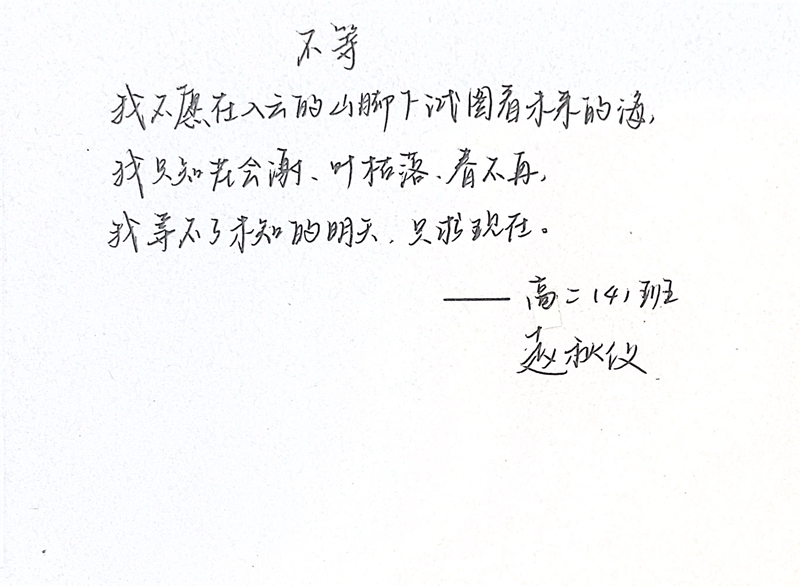 不等
我不愿在入云的山脚下试图看未来的海,
我只知花会谢、叶枯落、春不再,
我等不了未知的明天,只求现在。
——高二(4)班
赵秋仪